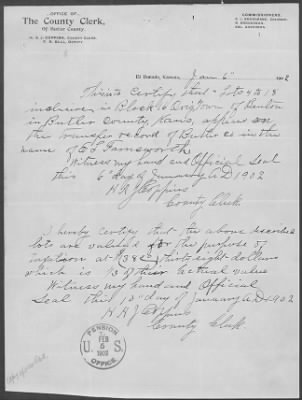 OFFICE OF
The County Clerk,
Of Butler County.
COMMISSIONERS.
El Dorado, Kansas, Jan 6" 1902
This is to Certify that Lots 4 to 18
inclusive in Block 6 Orig Town of Benton
in Butler County Kans, appears on
the transfer record of Butler Co in the
name of E L Farnsworth
Witness my hand and Official Seal
this 6" day of January A D 1902
H R J Coppins
County Clerk
I hereby Certify that the above described
lots are valued for the purpose of
taxation at $38 thirty eight dollars
which is 1/3 of their actual value
Witness my hand and Official
Seal this 13" day of January A D 1902
H R J Coppins
County Clerk.
PENSION
U. S.
FEB
5
1902
OFFICE